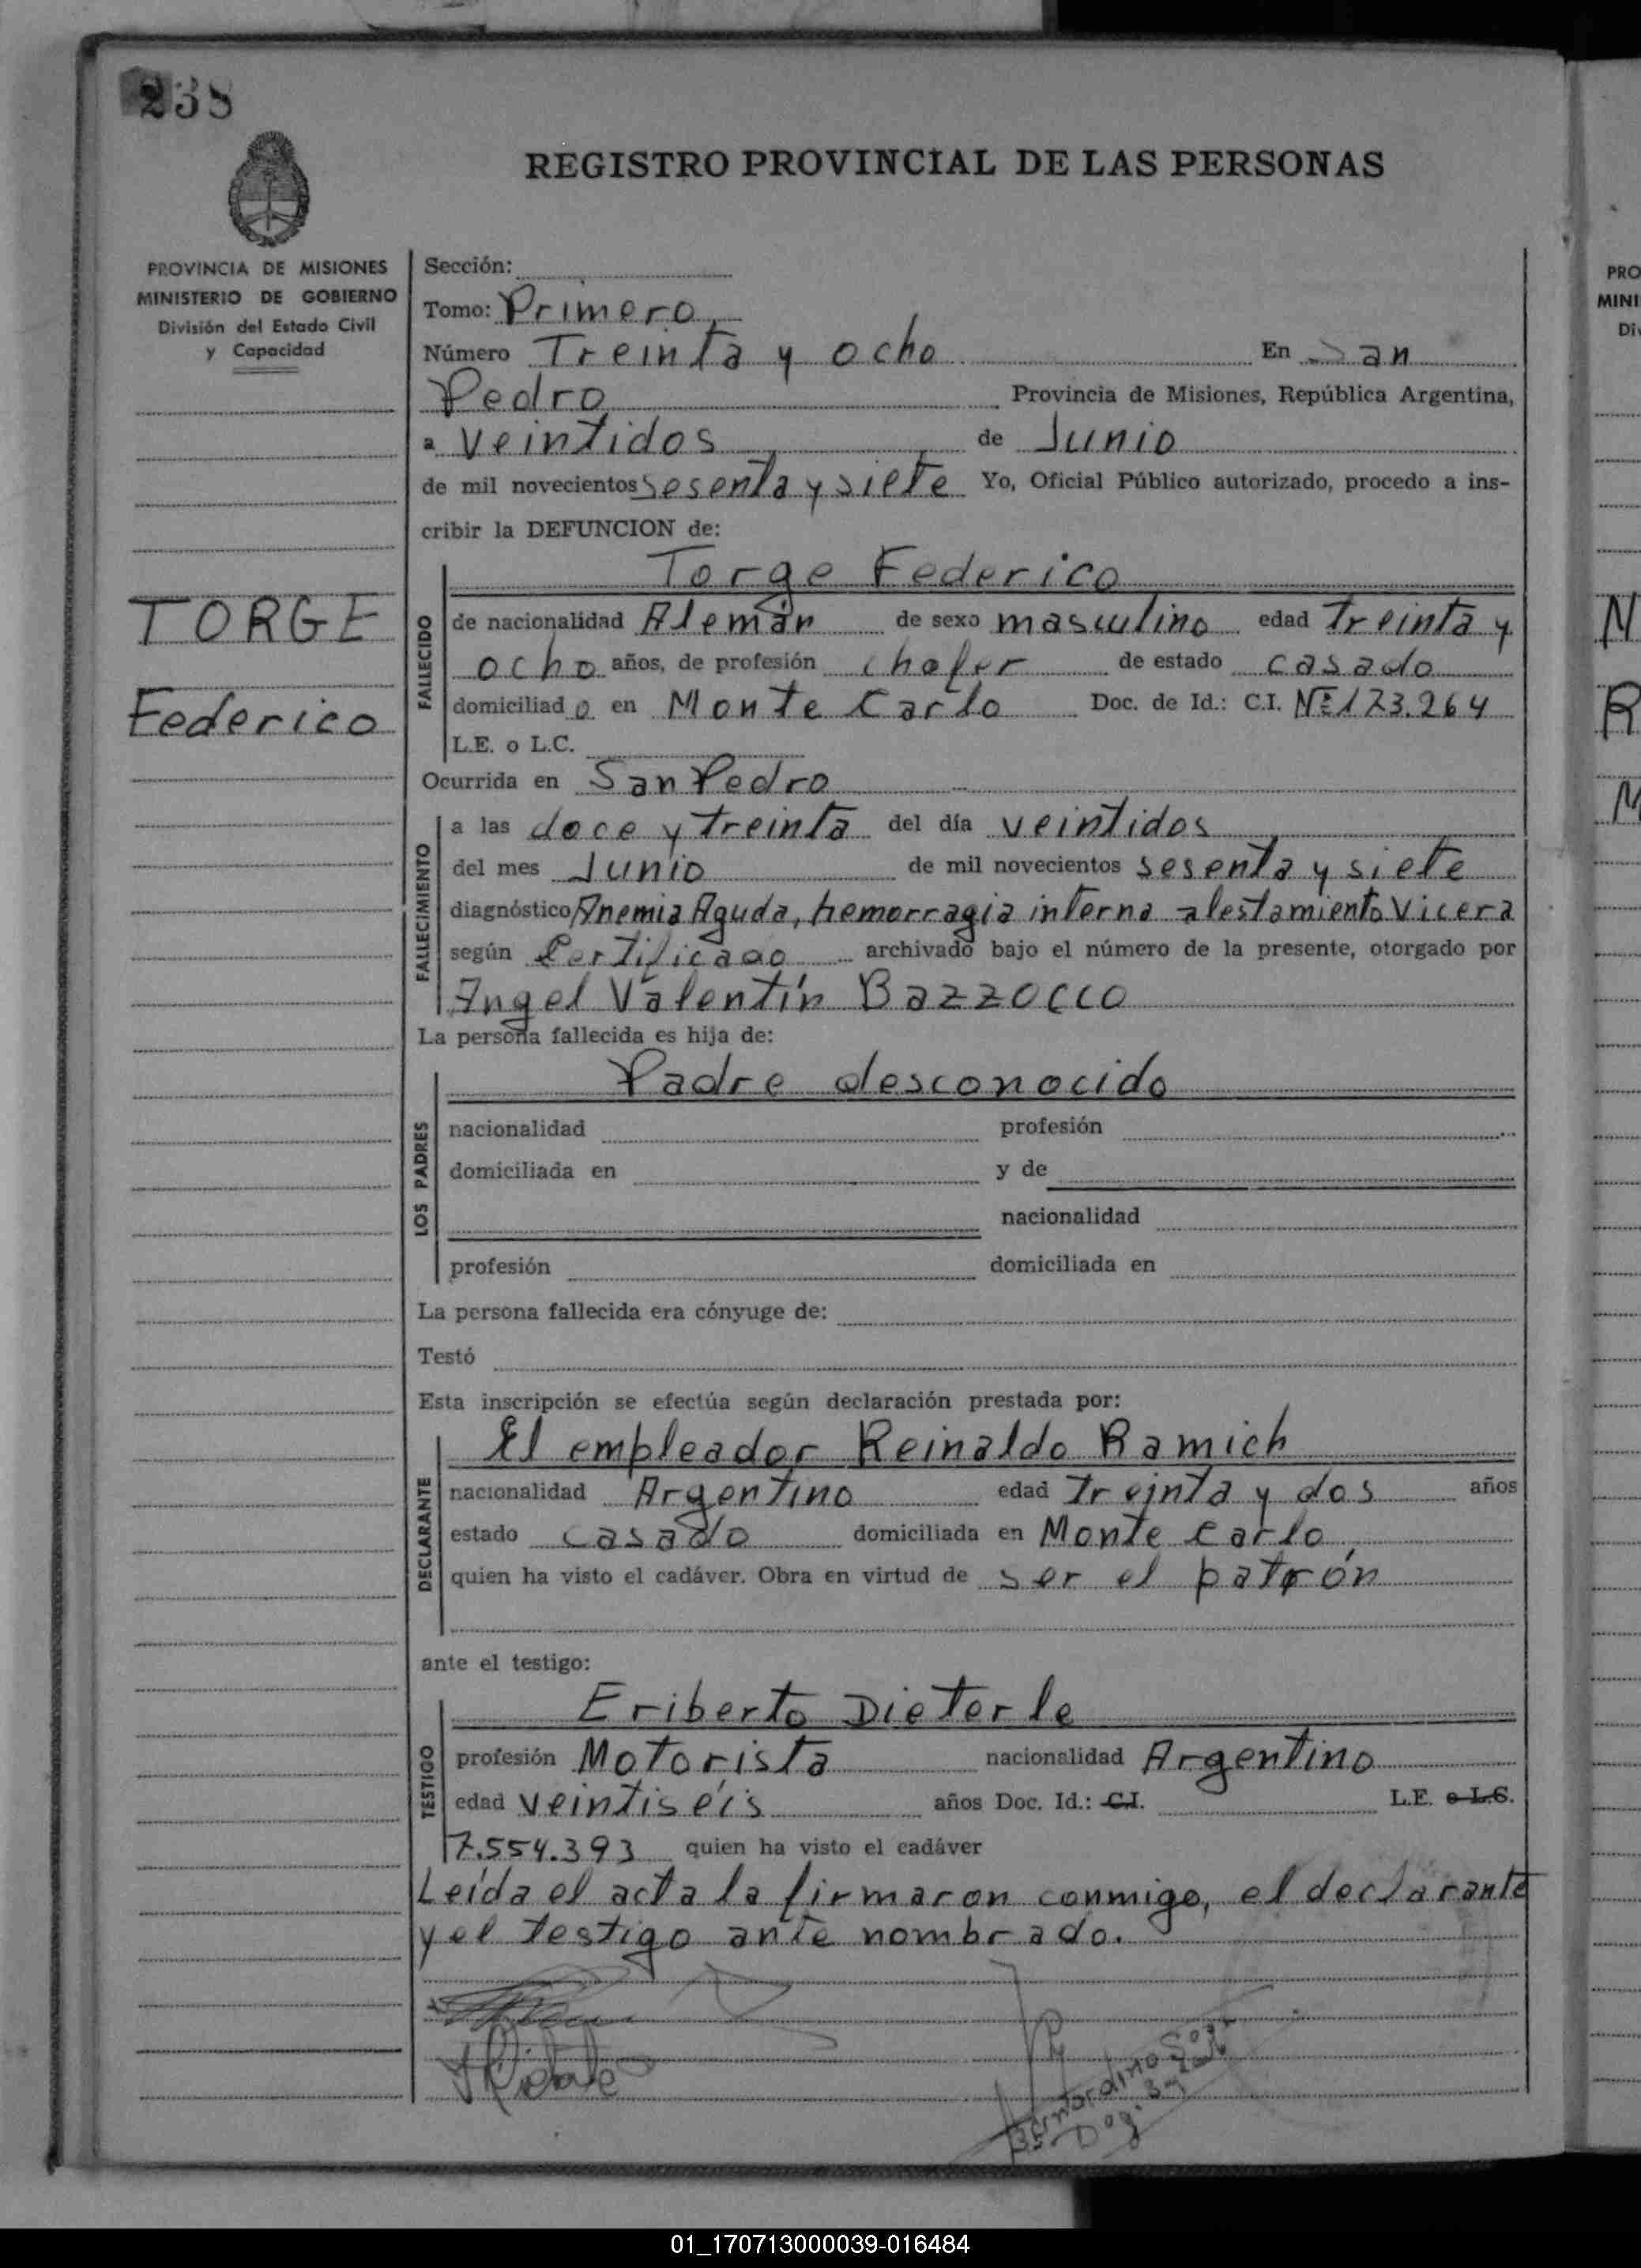 238
REGISTRO PROVINCIAL DE LAS PERSONAS
PROVINCIA DE MISIONES
MINISTERIO DE GOBIERNO
División del Estado Civil
y Capacidad
TORGE
Federico
Sección:
Tomo: Primero
Número Treinta y ocho En San
Pedro Provincia de Misiones, República Argentina,
a veintidos de Junio
de mil novecientos sesenta y siete Yo, Oficial Público autorizado, procedo a ins-
cribir la DEFUNCION de:
FALLECIDO
Torge Federico
de nacionalidad Alemán de sexo masculino edad Treinta y
ocho años, de profesión chofer de estado casado
domiciliado en Monte Carlo Doc. de Id.: C.I. Nº 173.264
L.E. o L.C.
Ocurrida en San Pedro
FALLECIMIENTO
a las doce y treinta del día veintidos
del mes Junio de mil novecientos sesenta y siete
diagnóstico Anemia Aguda, hemorragia interna alestamiento Vicera
según Certificado archivado bajo el número de la presente, otorgado por
Angel Valentín Bazzocco
La persona fallecida es hija de:
LOS PADRES
Padre desconocido
nacionalidad profesión
domiciliada en y de
nacionalidad
profesión domiciliada en
La persona fallecida era cónyuge de:
Testó
Esta inscripción se efectúa según declaración prestada por:
DECLARANTE
El empleador Reinaldo Ramich
nacionalidad Argentino edad Treinta y dos años
estado casado domiciliada en Monte Carlo,
quien ha visto el cadáver. Obra en virtud de ser el patrón
ante el testigo:
TESTIGO
Eriberto Dieterle
profesión Motorista nacionalidad Argentino
edad veintiséis años Doc. Id.: C.I. L.E. o L.C.
7.554.393 quien ha visto el cadáver
Leída el acta la firmaron conmigo, el declarante
y el testigo ante nombrado.
PRO
MINI
Di
N
R
M
01_170713000039-016484